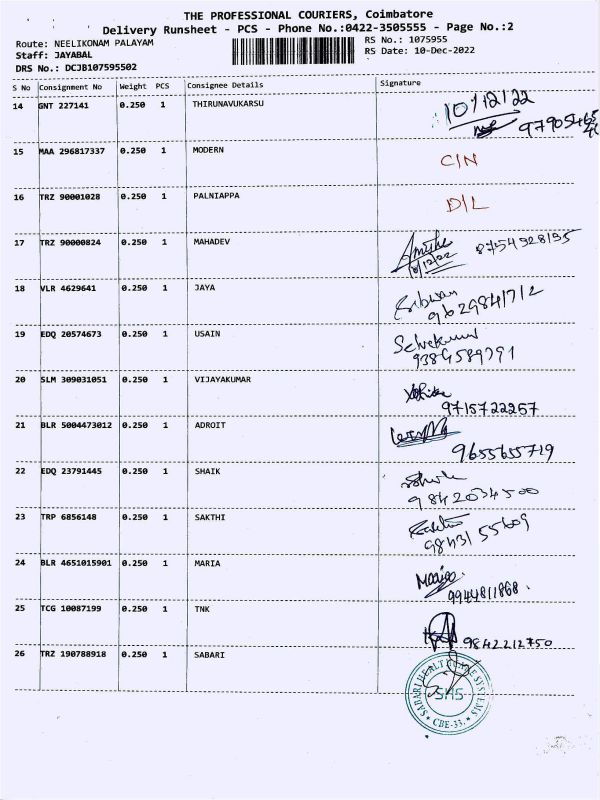 THE PROFESSIONAL COURIERS, Coimbatore
Delivery Runsheet - PCS - Phone No.:0422-3505555 - Page No.:2
Route: NEELIKONAM PALAYAM
RS No.: 1075955
Staff: JAYABAL
RS Date: 10-Dec-2022
DRS No.: DCJB107595502
S No Consignment No Weight PCS Consignee Details Signature
14 GNT 227141 0.250 1 THIRUNAVUKARSU 10/12/22
15 MAA 296817337 0.250 1 MODERN C/N
16 TRZ 90001028 0.250 1 PALNIAPPA D/L
17 TRZ 90000824 0.250 1 MAHADEV 8754928195
18 VLR 4629641 0.250 1 JAYA
9629841712
19 EDQ 20574673 0.250 1 USAIN Selvakumar
9384589791
20 SLM 309031051 0.250 1 VIJAYAKUMAR
9715722267
21 BLR 5004473012 0.250 1 ADROIT
9655655719
22 EDQ 23791445 0.250 1 SHAIK
9842034500
23 TRP 6856148 0.250 1 SAKTHI
9843155609
24 BLR 4651015901 0.250 1 MARIA
9944811868.
25 TCG 10087199 0.250 1 TNK
9842212750
26 TRZ 190788918 0.250 1 SABARI
SABARI HEALTH CARE SYSTEMS
SHS
* CBE-33. *